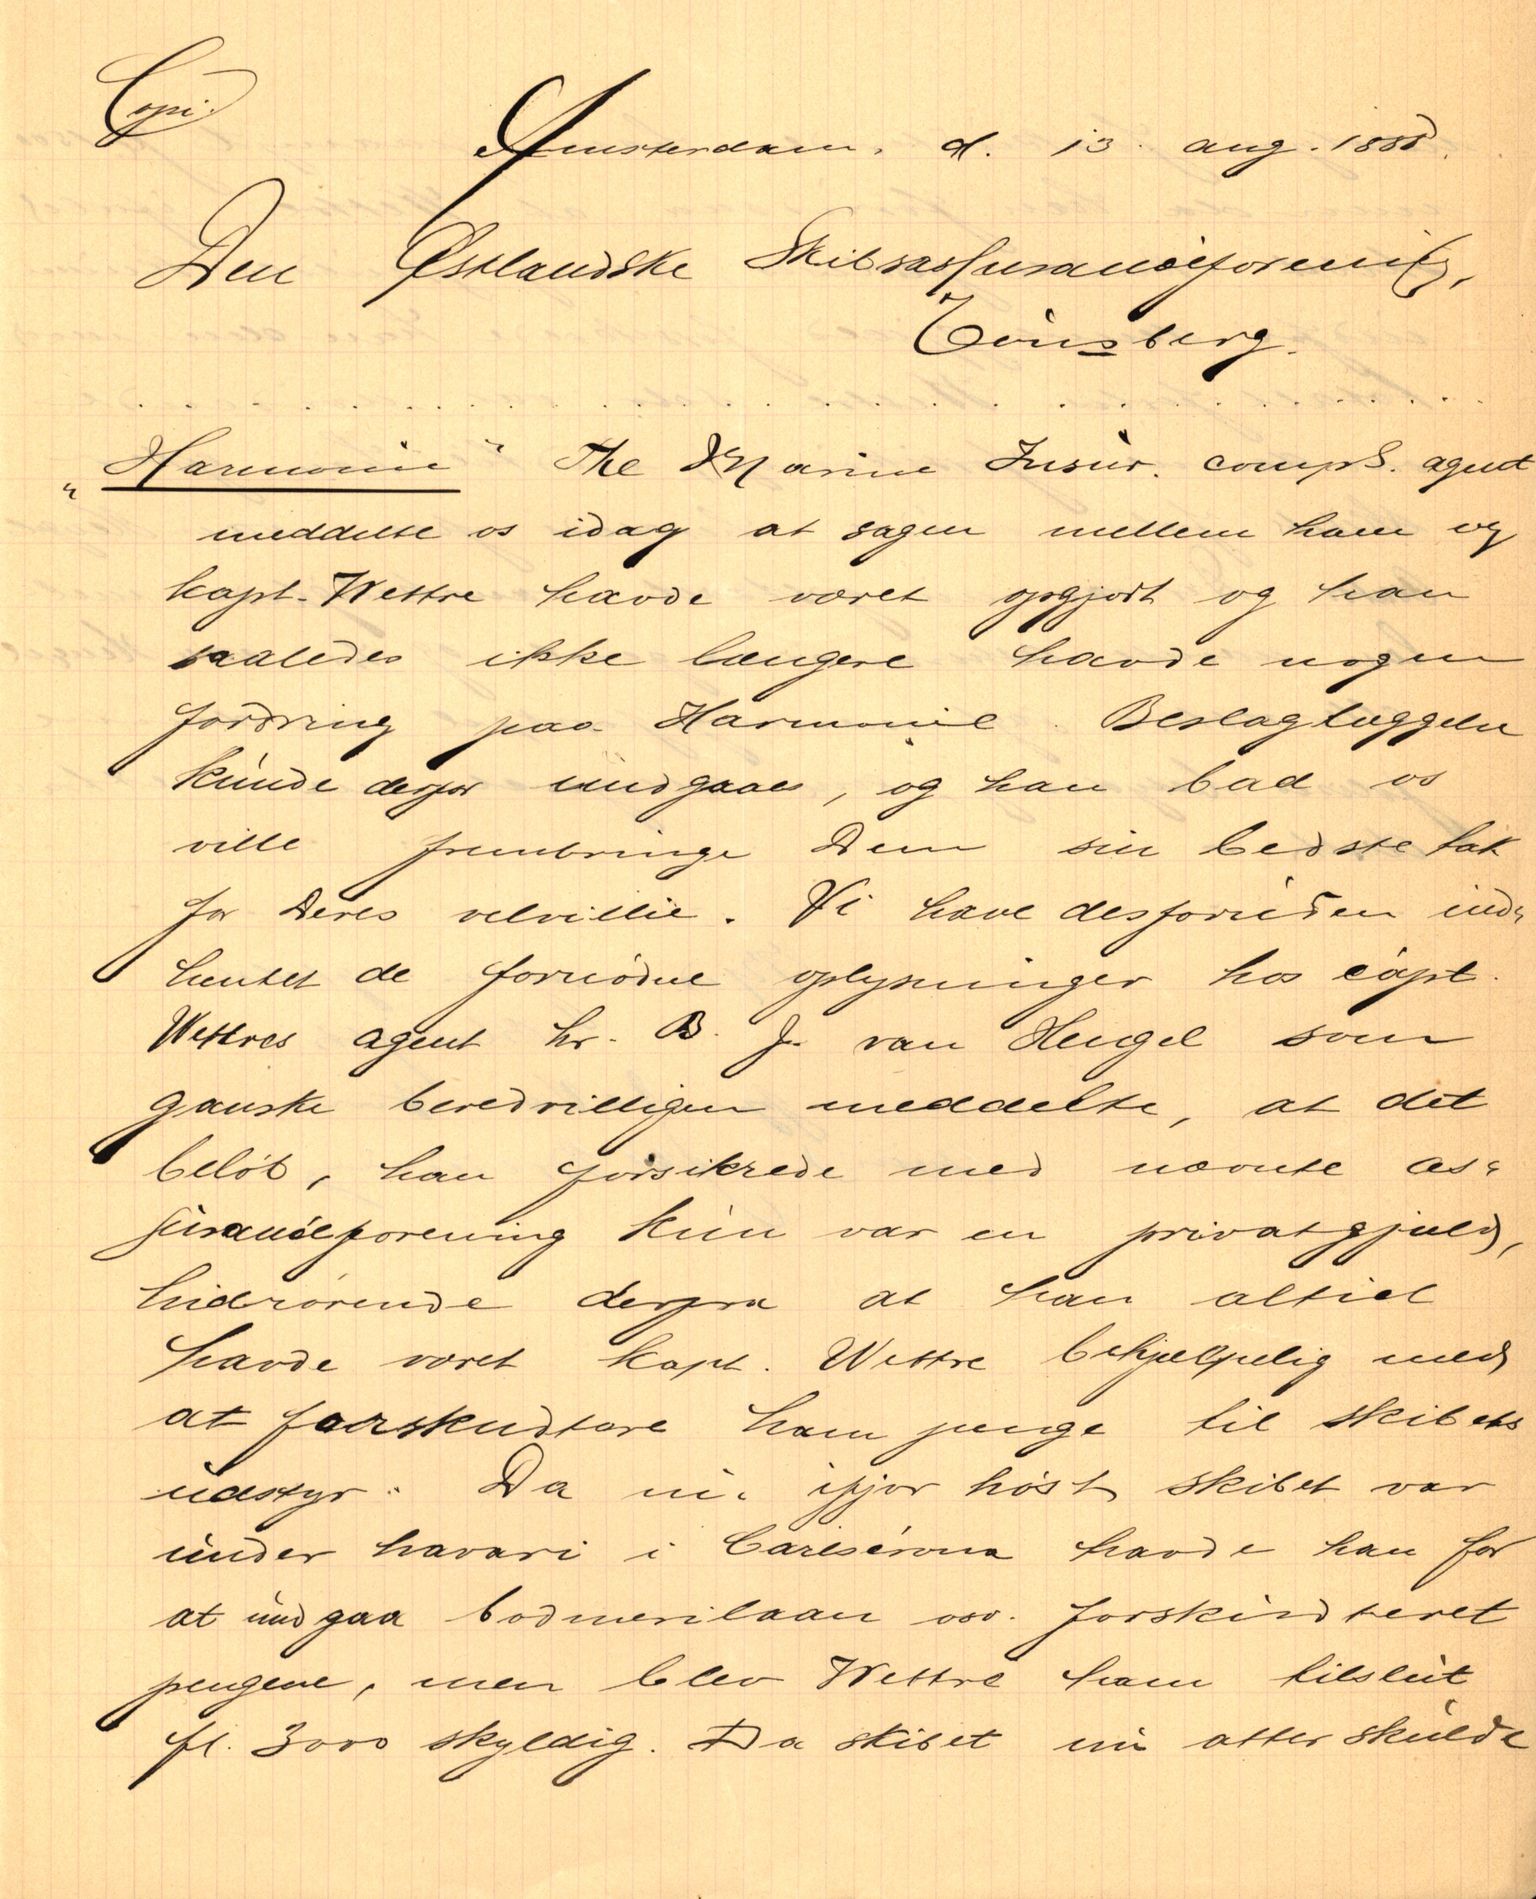 Copi.
Amsterdam. d. 13. aug. 1888.
Den Østlandske Skibsassuranceforening,
Tönsberg.
"Harmonie" The Marine Insur. comps. agent
meddelte os idag at sagen mellem ham og
kapt. Wettre havde været opgjort og han
saaledes ikke længere havde nogen
fordring paa Harmonie. Beslaglæggelse
kunde derfor undgaaes, og han bad os
ville frembringe Dem sin bedste tak
for Deres velvillie. Vi have desforuden ind-
hentet de fornödne oplysninger hos capt.
Wettres agent hr. B. J. van Hengel som
ganske beredvilligen meddelte, at det
belöb, han forsikrede med nævnte as-
suranceforening kun var en privatgjæld,
hidrörende derfra at han altid
havde været kapt. Wettre behjælpelig med
at forskudtere ham penge til skibets
udstyr. Da nu ifjor höst skibet var
under havari i Carlscrona havde han for
at undgaa bodmerilaan oso. forskudteret
pengene, men blev Wettre ham tilslut
fl. 3000 skyldig. Da skibet nu atter skulde